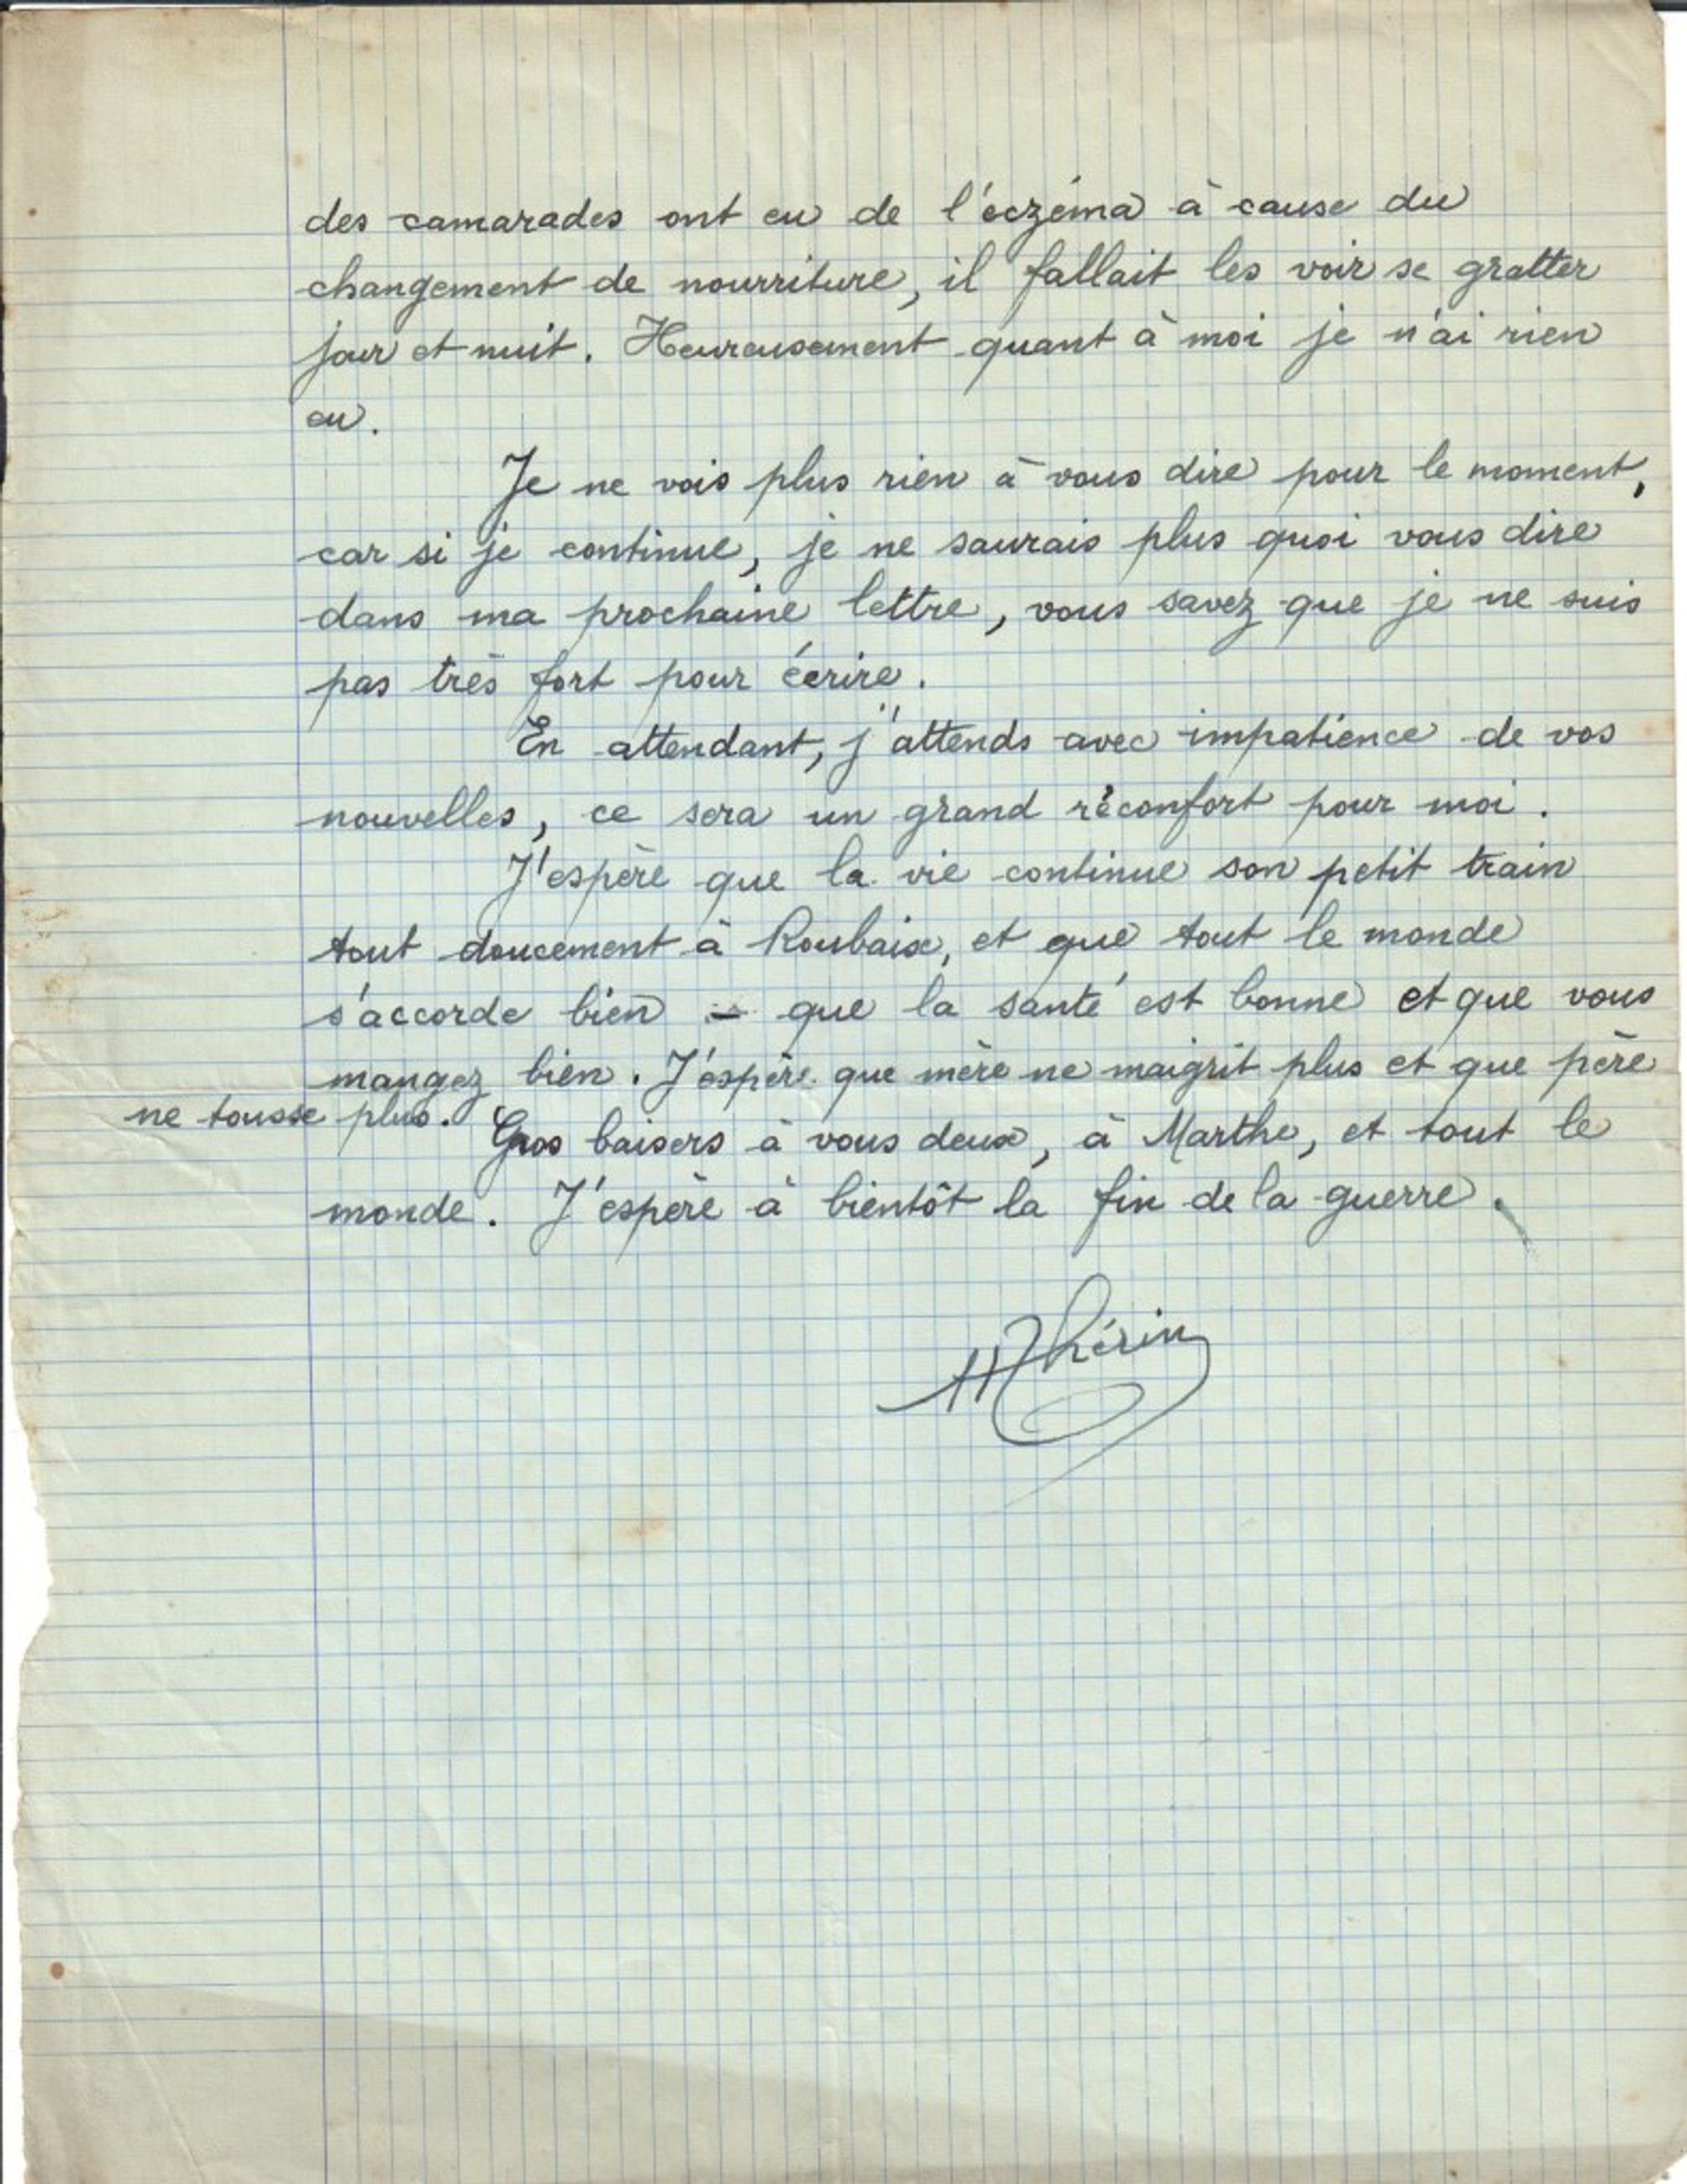 des camarades ont eu de l'éczéma à cause du
changement de nourriture, il fallait les voir se gratter
jour et nuit. Heureusement quant à moi je n'ai rien
eu.
Je ne vois plus rien à vous dire pour le moment,
car si je continue, je ne saurais plus quoi vous dire
dans ma prochaine lettre, vous savez que je ne suis
pas très fort pour écrire.
En attendant, j'attends avec impatience de vos
nouvelles, ce sera un grand réconfort pour moi.
J'espère que la vie continue son petit train
tout doucement à Roubaix, et que tout le monde
s'accorde bien - que la santé est bonne et que vous
mangez bien. J'éspère que mère ne maigrit plus et que père
ne tousse plus. Gros baisers à vous deux, à Marthe, et tout le
monde. J'espère à bientôt la fin de la guerre.